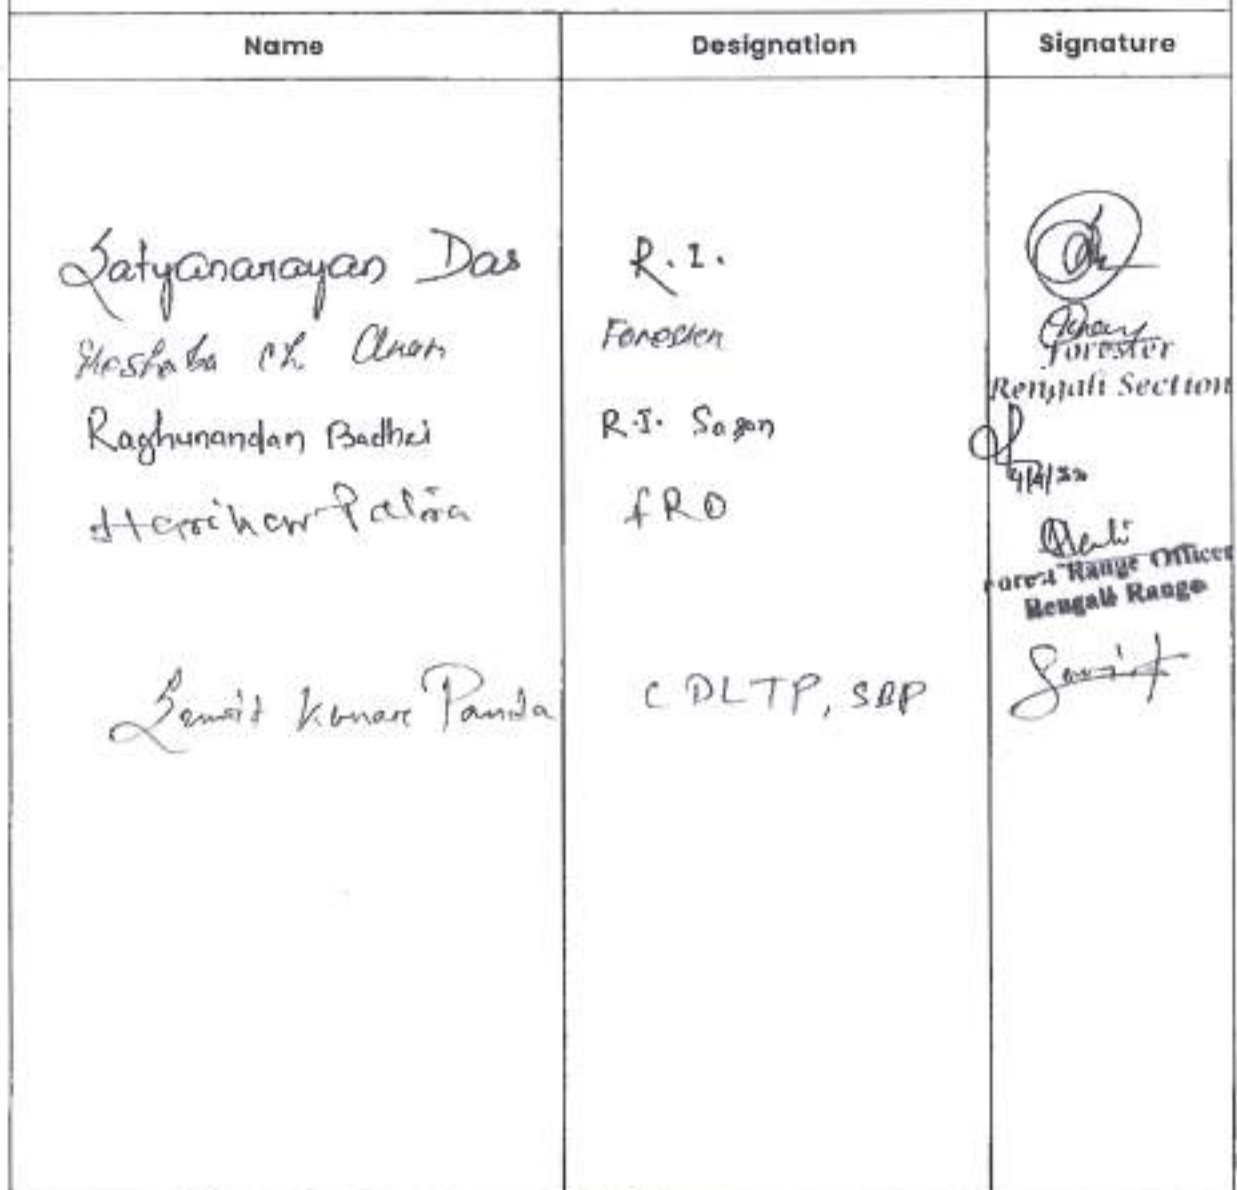 Name Designation Signature
Satyanarayan Das R.I.
Ch Forester
Forester
Rengali Section
Raghunandan Badhei R.I. Sason
Harihar Patra FRO
Forest Range Officer
Rengali Range
Kumar Panda CDLTP, SBP